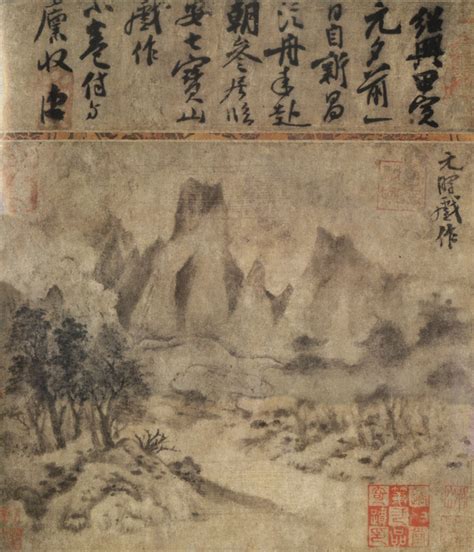 紹興甲寅
元夕前一
日自新昌
泛舟來赴
朝參居臨
安七寶山
戲作
小卷付與
廩收
元暉戲作